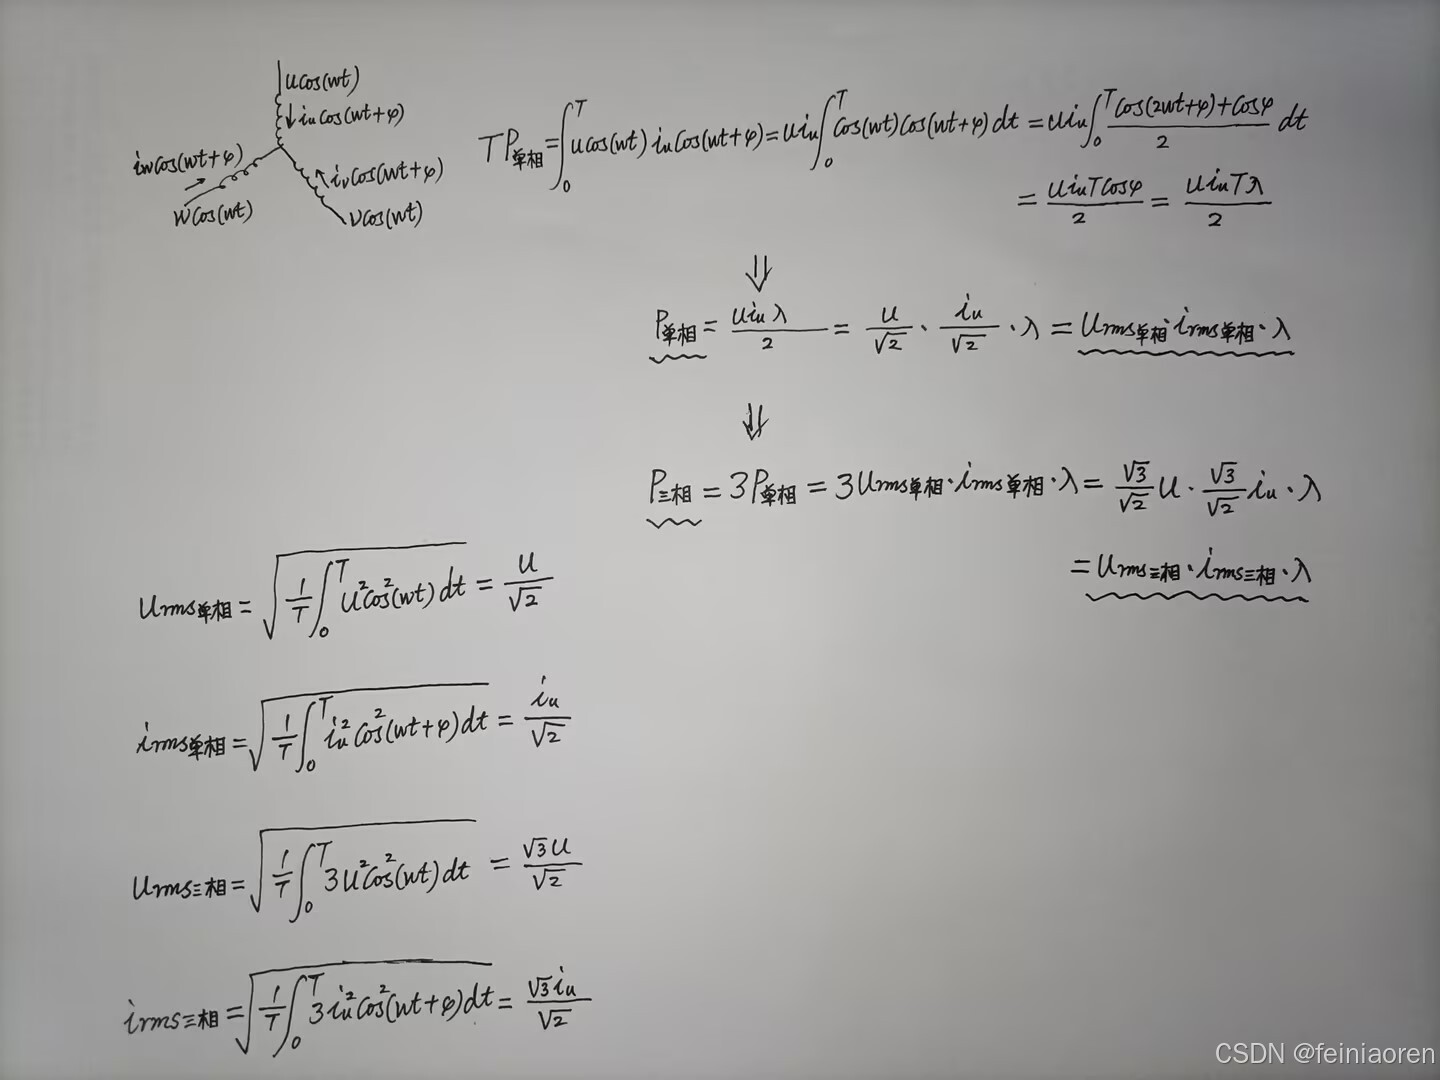 ucos(wt)
iucos(wt+φ)
iwcos(wt+φ)
ivcos(wt+φ)
wcos(wt)
vcos(wt)
TP单相=∫₀ᵀucos(wt)iucos(wt+φ)=uiu∫₀ᵀcos(wt)cos(wt+φ)dt=uiu∫₀ᵀ(cos(2wt+φ)+cosφ)/2 dt
=uiuTcosφ/2=uiuTλ/2
⇓
P单相=uiuλ/2=u/√2·iu/√2·λ=Urms单相·irms单相·λ
⇓
P三相=3P单相=3Urms单相·irms单相·λ=√3/√2 u·√3/√2 iu·λ
=Urms三相·irms三相·λ
Urms单相=√(1/T∫₀ᵀu²cos²(wt)dt)=u/√2
irms单相=√(1/T∫₀ᵀiu²cos²(wt+φ)dt)=iu/√2
Urms三相=√(1/T∫₀ᵀ3u²cos²(wt)dt)=√3u/√2
irms三相=√(1/T∫₀ᵀ3iu²cos²(wt+φ)dt)=√3iu/√2
CSDN @feiniaoren